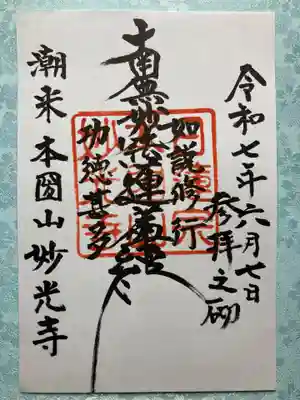 令和七年六月七日
参拝之砌
如説修行
南無妙法蓮華経
功徳甚多
潮来 本圓山妙光寺